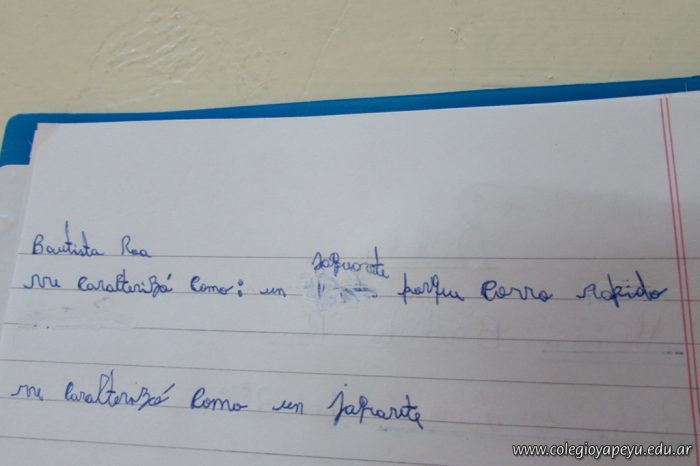 Bautista Roa
Me caracterizó como: un jaguarete porque corro rapido
me caracterizó como un jaguarete
www.colegioyapeyu.edu.ar